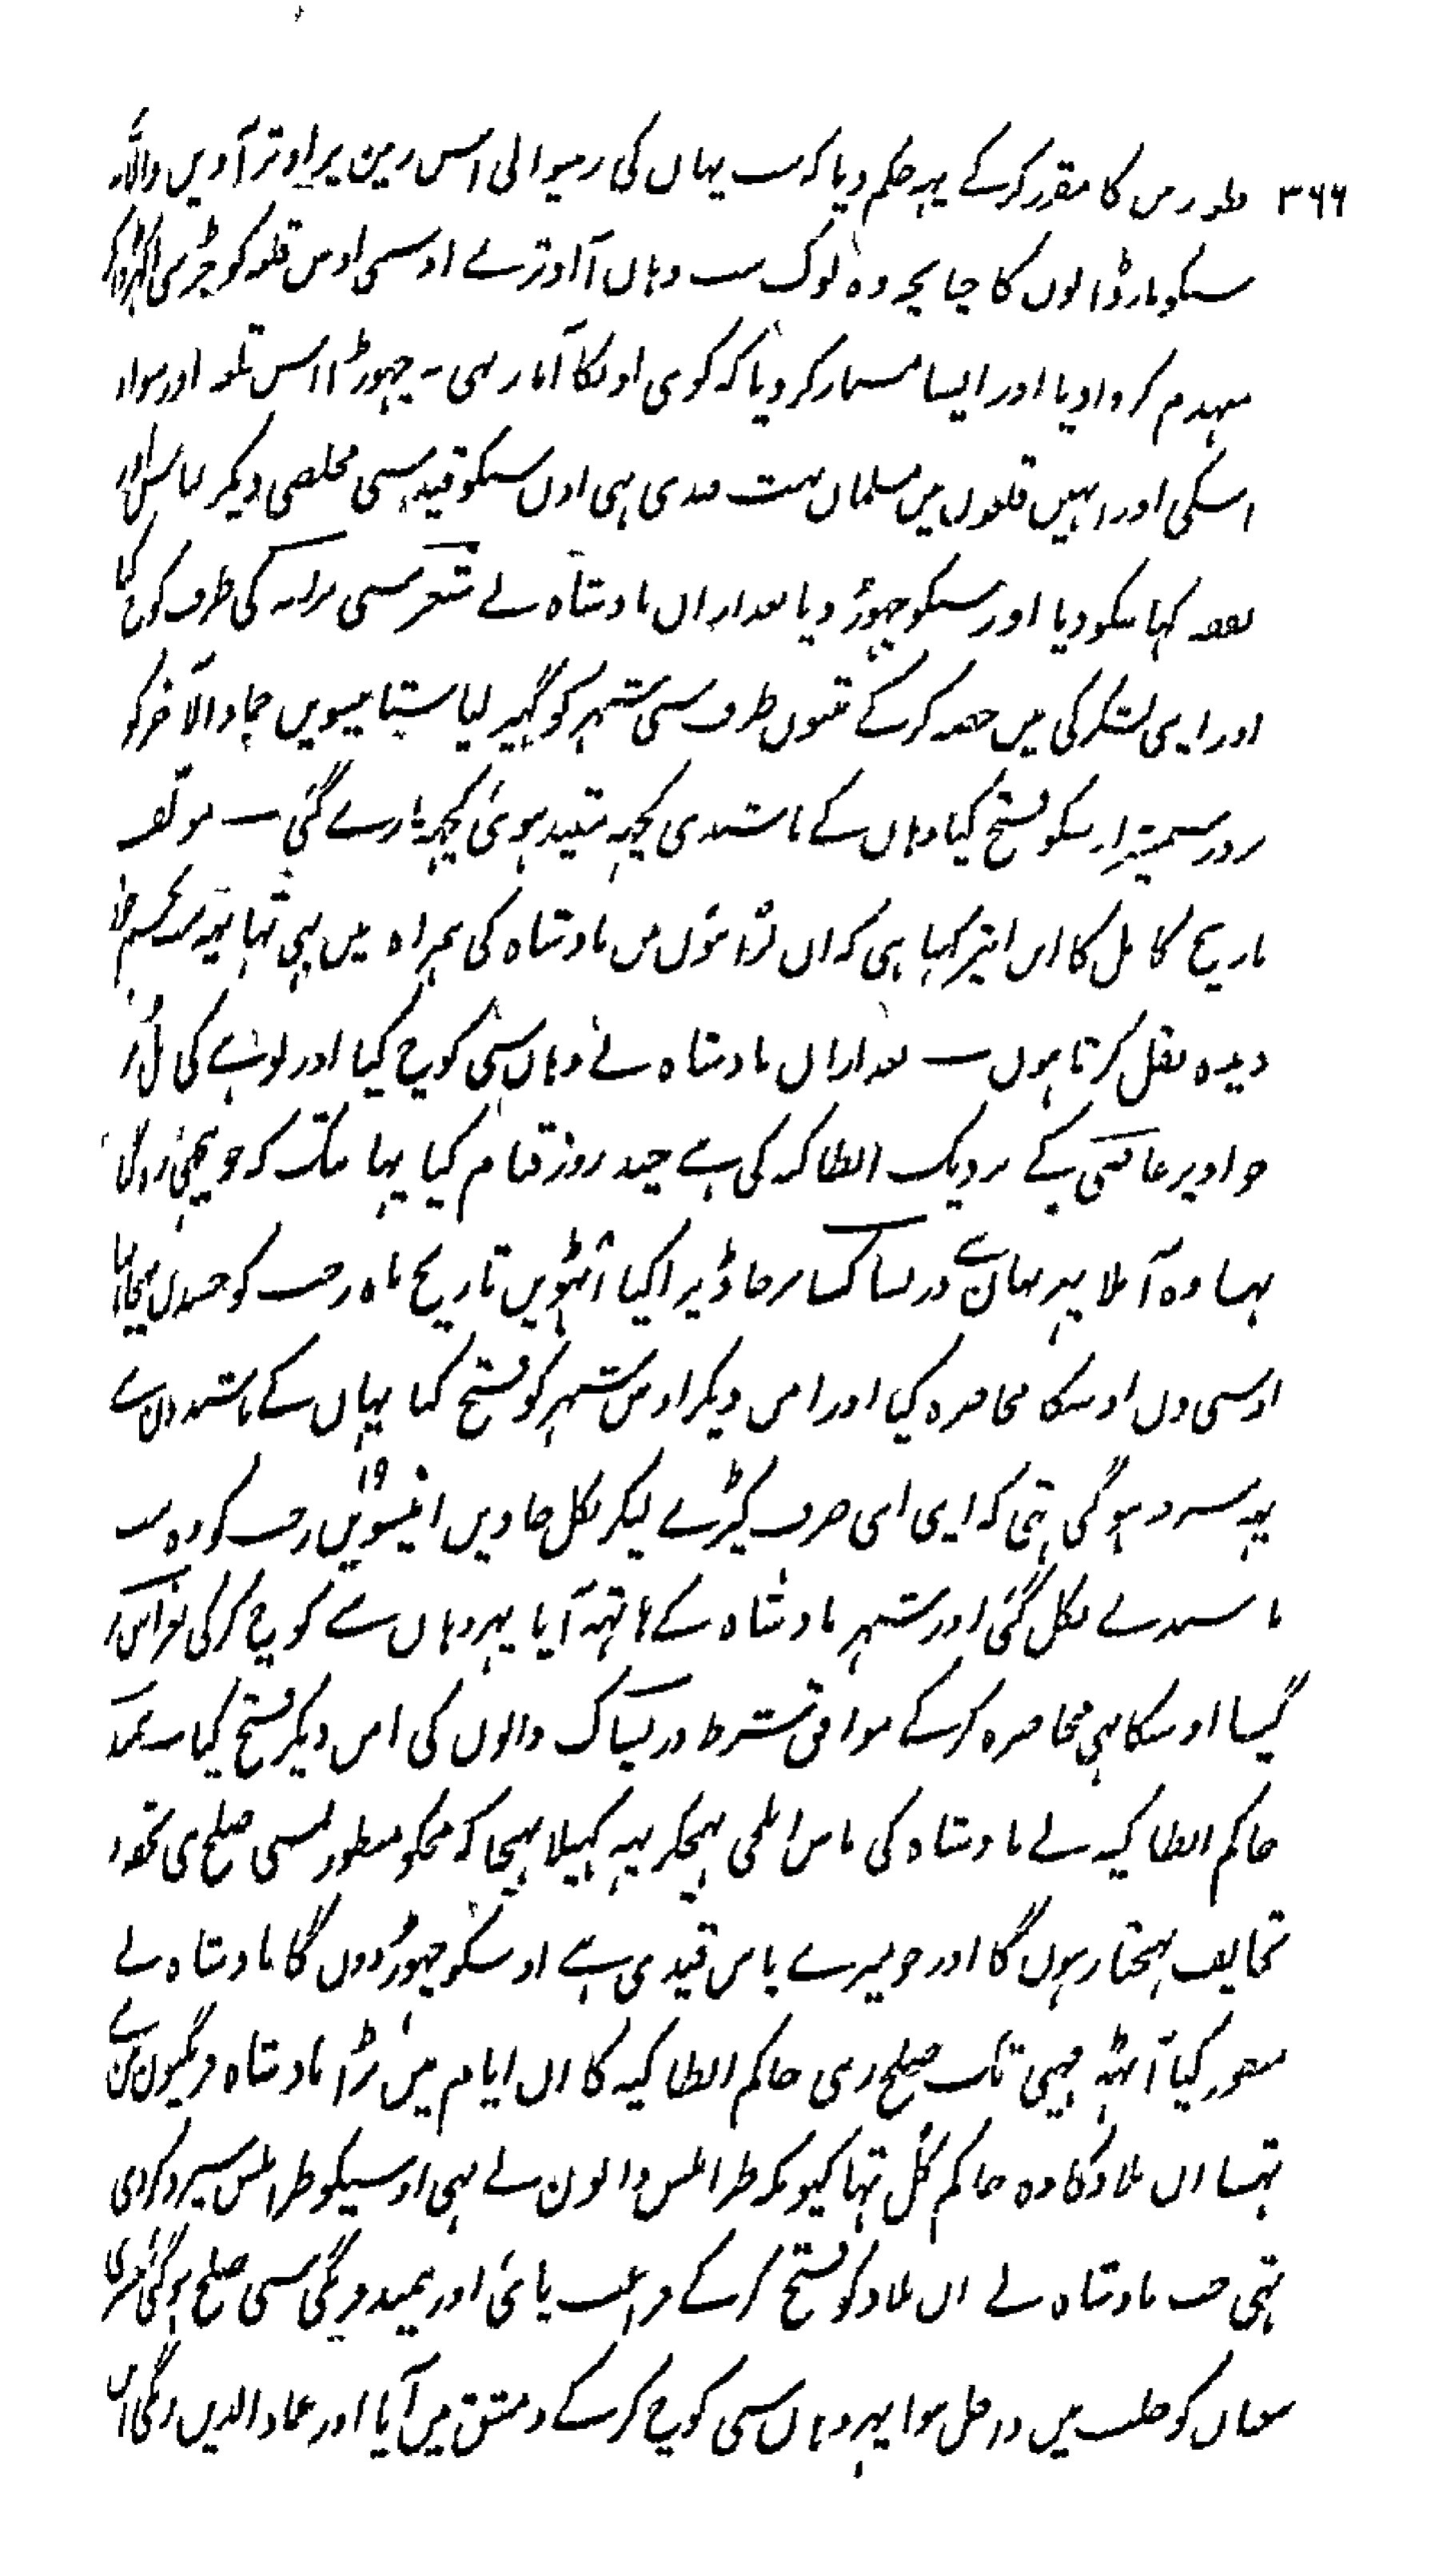 ۳۶۶ طور س کا مقرر کرکے یہہ حکم دیا کہ سب یہاں کی رہنوالی اس زمین پر اوتر آویں والا نہ
سبکو مار ڈالوں گا چنانچہ وہ لوگ سب وہاں آ اوترے اوسی اوس قلعہ کو جڑ سی
منہدم کروا دیا اور ایسا مسمار کر دیا کہ کوی اونکا آثار بہی نہ چہوڑا اس قلعہ اور سواء
اسکی اور انہیں قلعوں میں مسلمان بہت قیدی ہی اون سبکو قید سی مخلصی دیکر لباس اور
نفقہ کہا سکو دیا اور سبکو چہوڑ دیا بعد ازاں بادشاہ نے شغر سی برزیہ کی طرف کوچ کیا
اور اپنی لشکر کی تین حصہ کرکے تینوں طرف سی شہر کو گہیر لیا ستائیسویں جماد الآخر کو
بزور شمشیر اوسکو فتح کیا وہاں کے باشندی کچہہ مقید ہوئی کچہہ مارے گئی — مولف
تاریخ کامل کا ابن اثیر کہتا ہی کہ ان لڑائیوں میں بادشاہ کی ہمراہ میں بہی تہا یہہ بچشم خود
دیدہ نقل کرتا ہوں — بعد ازاں بادشاہ نے وہاں سی کوچ کیا اور لوہے کی پل پر
جو اوپر عاصی کے نزدیک انطاکیہ کی ہے چند روز قیام کیا یہانتک کہ جو پیچہی
تہا وہ آملا پہر یہاں سے دربساک پر جا ڈیرا کیا آٹہویں تاریخ ماہ رجب کو جسدن
اوسی دن اوسکا محاصرہ کیا اور امن دیکر اوس شہر کو فتح کیا یہاں کے باشندوں سے
یہہ شرط ہوگی تہی کہ اپنی اپنی صرف کپڑے لیکر نکل جاویں انیسویں ۱۹ رجب کو وہ سب
باشندے نکل گئی اور شہر بادشاہ کے ہاتہہ آیا پہر وہاں سے کوچ کرکی بغراس پر
گیا اوسکا بہی محاصرہ کرکے موافق شرط دربساک والوں کی امن دیکر فتح کیا بیمند
حاکم انطاکیہ نے بادشاہ کی پاس ایلچی بہیجکر یہہ کہلا بہیجا کہ مجکو منظور صلح ہی تحفہ و
تحایف بہیجتا رہوں گا اور جو میرے پاس قیدی ہے اوسکو چہوڑ دوں گا بادشاہ نے
منظور کیا آٹہہ مہینی تک صلح رہی حاکم انطاکیہ کا ان ایام میں بڑا بادشاہ فرنگیوں میں سے
تہا ان بلاد کا وہ حاکم کل تہا کیونکہ طرابلس والوں نے بہی اوسیکو طرابلس سپرد کردی
تہی جب بادشاہ نے ان بلاد کو فتح کرکے فراغت پائی اور بیمند فرنگی سی صلح ہوگئی تیسری
شعبان کو حلب میں داخل ہوا پہر وہاں سی کوچ کرکے دمشق میں آیا اور عماد الدین زنگی